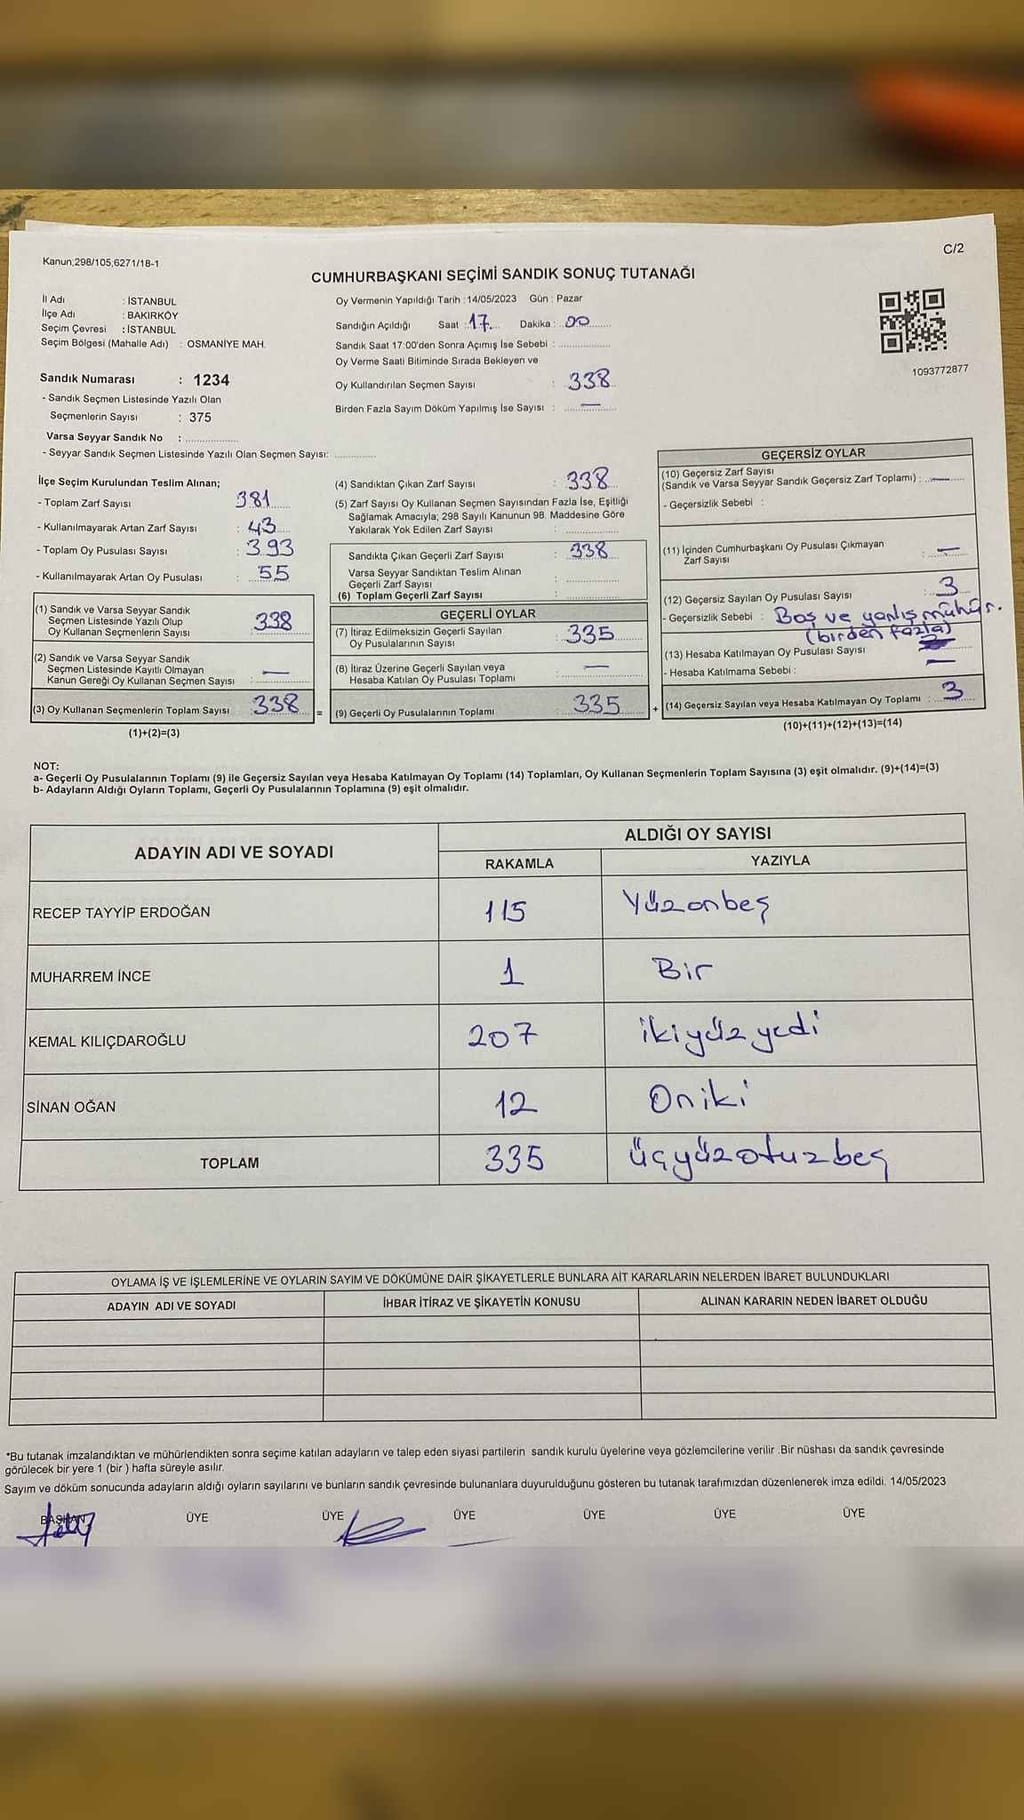 Kanun;298/105;6271/18-1
C/2
CUMHURBAŞKANI SEÇİMİ SANDIK SONUÇ TUTANAĞI
İl Adı : İSTANBUL
İlçe Adı : BAKIRKÖY
Seçim Çevresi : İSTANBUL
Seçim Bölgesi (Mahalle Adı) : OSMANİYE MAH.
Sandık Numarası : 1234
- Sandık Seçmen Listesinde Yazılı Olan
Seçmenlerin Sayısı : 375
Varsa Seyyar Sandık No :
- Seyyar Sandık Seçmen Listesinde Yazılı Olan Seçmen Sayısı:
Oy Vermenin Yapıldığı Tarih :14/05/2023 Gün : Pazar
Sandığın Açıldığı Saat : 17 Dakika : 00
Sandık Saat 17:00'den Sonra Açımış İse Sebebi :
Oy Verme Saati Bitiminde Sırada Bekleyen ve
Oy Kullandırılan Seçmen Sayısı : 338
Birden Fazla Sayım Döküm Yapılmış İse Sayısı : —
1093772877
İlçe Seçim Kurulundan Teslim Alınan;
- Toplam Zarf Sayısı 381
- Kullanılmayarak Artan Zarf Sayısı : 43
- Toplam Oy Pusulası Sayısı : 393
- Kullanılmayarak Artan Oy Pusulası : 55
(1) Sandık ve Varsa Seyyar Sandık
Seçmen Listesinde Yazılı Olup
Oy Kullanan Seçmenlerin Sayısı : 338
(2) Sandık ve Varsa Seyyar Sandık
Seçmen Listesinde Kayıtlı Olmayan
Kanun Gereği Oy Kullanan Seçmen Sayısı : —
(3) Oy Kullanan Seçmenlerin Toplam Sayısı : 338 =
(1)+(2)=(3)
(4) Sandıktan Çıkan Zarf Sayısı : 338
(5) Zarf Sayısı Oy Kullanan Seçmen Sayısından Fazla İse, Eşitliği
Sağlamak Amacıyla; 298 Sayılı Kanunun 98. Maddesine Göre
Yakılarak Yok Edilen Zarf Sayısı :
Sandıkta Çıkan Geçerli Zarf Sayısı : 338
Varsa Seyyar Sandıktan Teslim Alınan
Geçerli Zarf Sayısı :
(6) Toplam Geçerli Zarf Sayısı :
GEÇERLİ OYLAR
(7) İtiraz Edilmeksizin Geçerli Sayılan
Oy Pusulalarının Sayısı : 335
(8) İtiraz Üzerine Geçerli Sayılan veya
Hesaba Katılan Oy Pusulası Toplamı : —
(9) Geçerli Oy Pusulalarının Toplamı : 335 +
GEÇERSİZ OYLAR
(10) Geçersiz Zarf Sayısı
(Sandık ve Varsa Seyyar Sandık Geçersiz Zarf Toplamı) : —
- Geçersizlik Sebebi :
(11) İçinden Cumhurbaşkanı Oy Pusulası Çıkmayan
Zarf Sayısı : —
(12) Geçersiz Sayılan Oy Pusulası Sayısı : 3
- Geçersizlik Sebebi : Boş ve yanlış mühür.
(birden fazla)
(13) Hesaba Katılmayan Oy Pusulası Sayısı : —
- Hesaba Katılmama Sebebi :
(14) Geçersiz Sayılan veya Hesaba Katılmayan Oy Toplamı : 3
(10)+(11)+(12)+(13)=(14)
NOT:
a- Geçerli Oy Pusulalarının Toplamı (9) ile Geçersiz Sayılan veya Hesaba Katılmayan Oy Toplamı (14) Toplamları, Oy Kullanan Seçmenlerin Toplam Sayısına (3) eşit olmalıdır. (9)+(14)=(3)
b- Adayların Aldığı Oyların Toplamı, Geçerli Oy Pusulalarının Toplamına (9) eşit olmalıdır.
ADAYIN ADI VE SOYADI ALDIĞI OY SAYISI
RAKAMLA YAZIYLA
RECEP TAYYİP ERDOĞAN 115 Yüzonbeş
MUHARREM İNCE 1 Bir
KEMAL KILIÇDAROĞLU 207 ikiyüz yedi
SİNAN OĞAN 12 Oniki
TOPLAM 335 üçyüzotuzbeş
OYLAMA İŞ VE İŞLEMLERİNE VE OYLARIN SAYIM VE DÖKÜMÜNE DAİR ŞİKAYETLERLE BUNLARA AİT KARARLARIN NELERDEN İBARET BULUNDUKLARI
ADAYIN ADI VE SOYADI İHBAR İTİRAZ VE ŞİKAYETİN KONUSU ALINAN KARARIN NEDEN İBARET OLDUĞU
*Bu tutanak imzalandıktan ve mühürlendikten sonra seçime katılan adayların ve talep eden siyasi partilerin sandık kurulu üyelerine veya gözlemcilerine verilir .Bir nüshası da sandık çevresinde
görülecek bir yere 1 (bir ) hafta süreyle asılır.
Sayım ve döküm sonucunda adayların aldığı oyların sayılarını ve bunların sandık çevresinde bulunanlara duyurulduğunu gösteren bu tutanak tarafımızdan düzenlenerek imza edildi. 14/05/2023
BAŞKAN ÜYE ÜYE ÜYE ÜYE ÜYE ÜYE